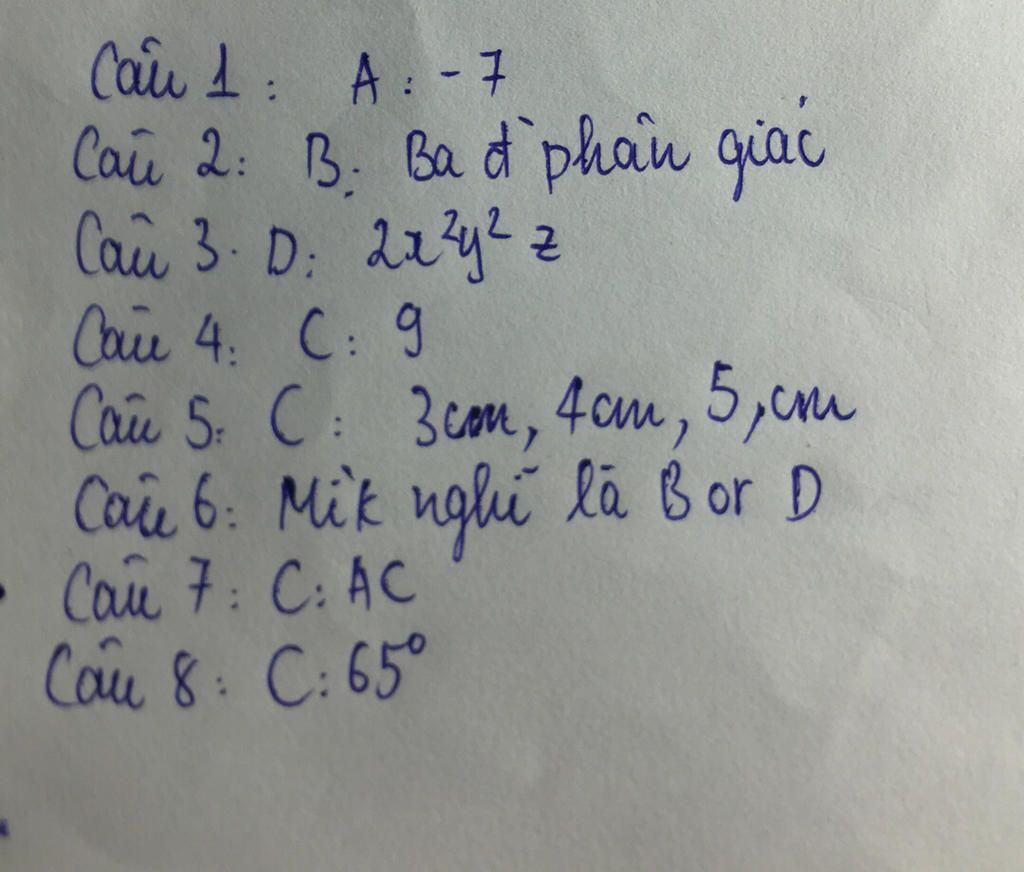 Câu 1: A: -7
Câu 2: B: Ba đ` phân giác
Câu 3. D: 2x²y² z
Câu 4: C: 9
Câu 5: C: 3cm, 4cm, 5,cm
Câu 6: Mìk nghĩ là B or D
Câu 7: C: AC
Câu 8: C: 65°